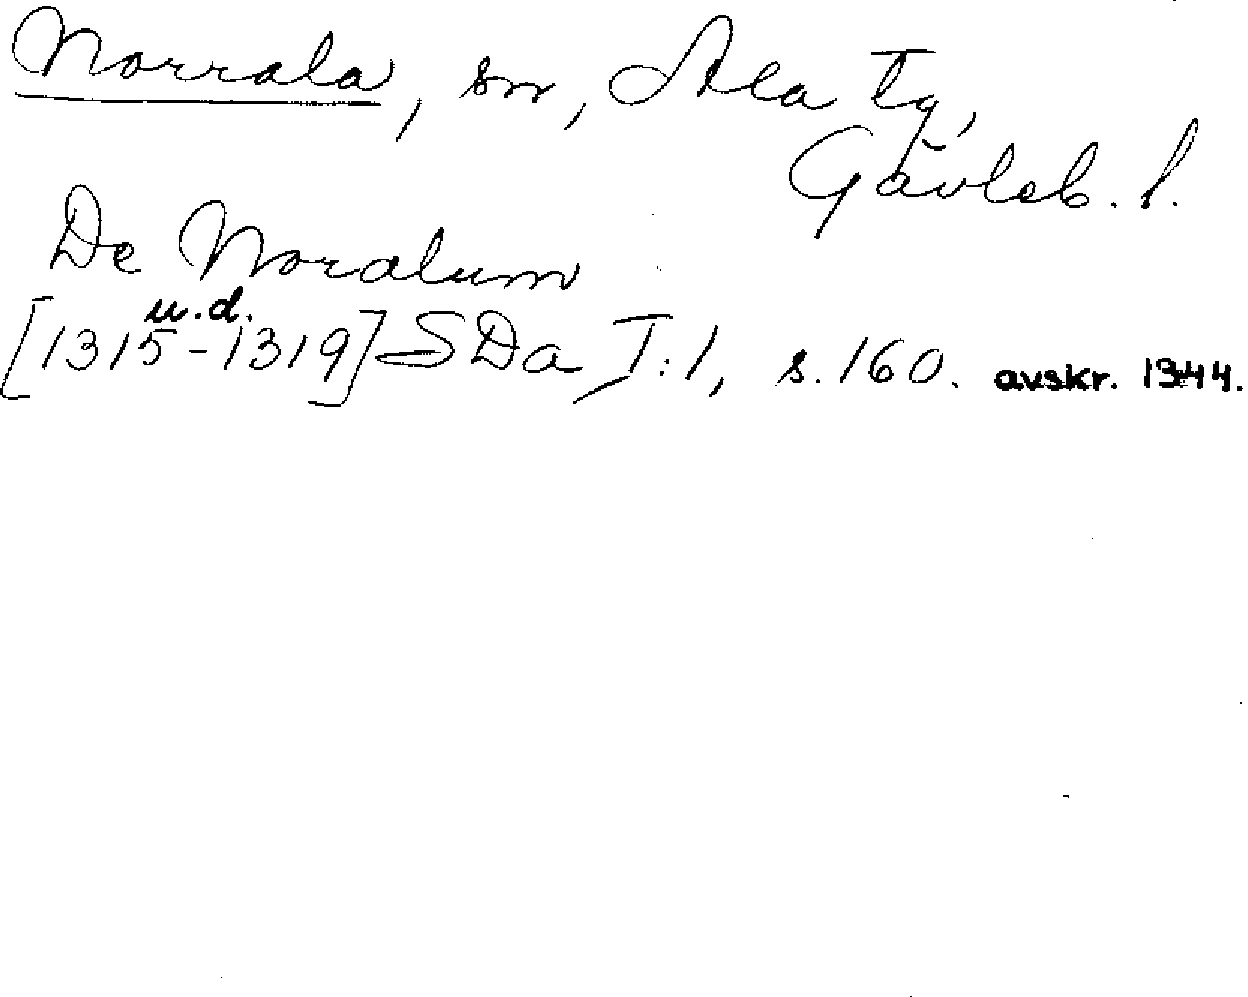 Norrala, sn, Ala tg,
Gävleb. l.
De Noralum
u.d.
[1315-1319] SDa I:1, s. 160. avskr. 1944.